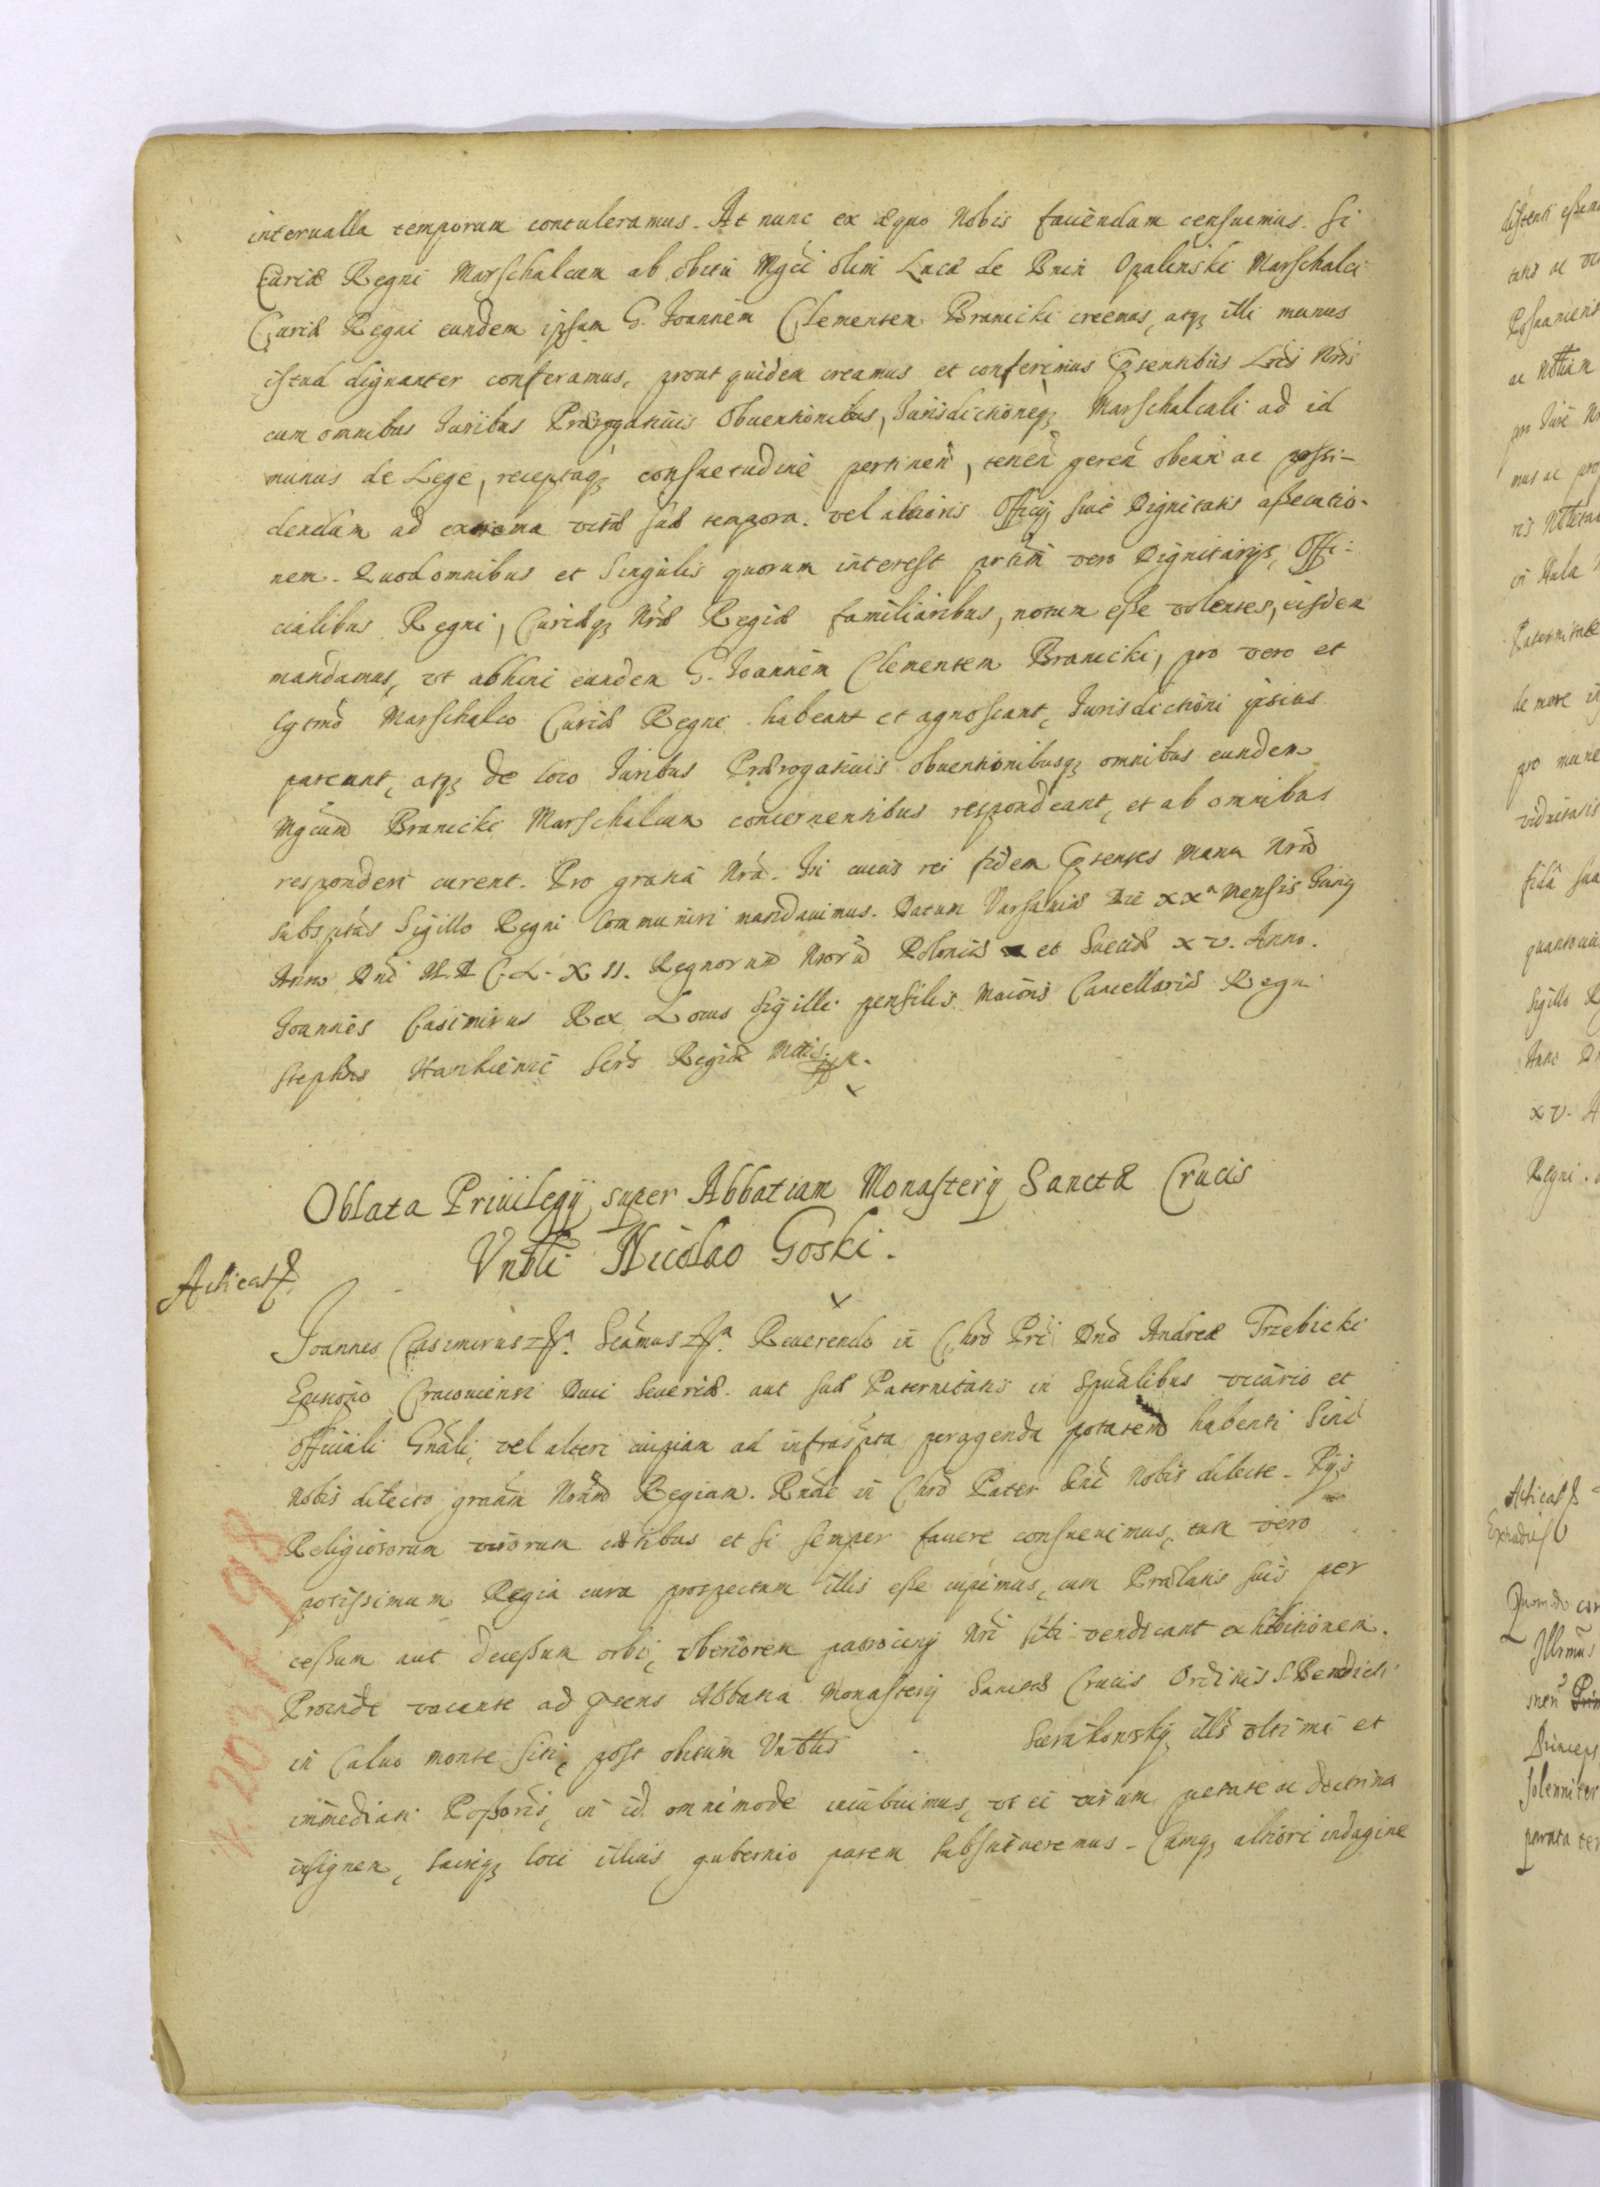 interualla temporum contuleramus. At nunc ex æquo Nobis fauendum censuimus. Si
Curiæ Regni Marschalcum ab obitu Mgci olim Lucæ de Bnin Opalinski Marschalci
Curiæ Regni eundem ipsum G. Joannem Clementem Branicki creemus, atq; illi munus
istud dignanter conferamus, prout quidem creamus et conferimus Pntibus Lris Nris
cum omnibus Juribus Prærogatiuis Obuentionibus, Jurisdictioneq; Marschalcali ad id
munus de Lege, receptaq; consuetudine pertinen, tenen geren obeun ac possi-
dendum ad extrema vitæ suæ tempora. vel altioris Officij siue Dignitatis assecutio-
nem. Quod omnibus et Singulis quorum interest prtim vero Dignitarijs, Offi-
cialibus Regni, Curiæq; Nræ Regiæ familiaribus, notum esse volentes, eisdem
mandamus, vt abhinc eundem G. Joannem Clementem Branicki, pro vero et
lgtmo Marschalco Curiæ Regni habeant et agnoscant, Jurisdictioni ipsius
pareant, atq; de loco Juribus Prærogatiuis obuentionibusq; omnibus eundem
Mgcum Branicki Marschalcum concernentibus respondeant, et ab omnibus
responderi curent. Pro gratia Nra. In cuius rei fidem Psentes Manu Nra
subsptas Sigillo Regni Communiri mandauimus. Datum Varsauiæ Die XXa Mensis Junij
Anno Dni M.D C.L.X II. Regnorum Nrorũ Poloniæ et Sueciæ XV. Anno.
Joannes Casimirus Rex Locus Sigilli pensilis Maioris Cancellariæ Regni
Stephus Hankiewic Secr Regiæ Mttis.
Oblata Priuilegij super Abbatiam Monasterij Sanctæ Crucis
Vnbli Nicolao Goski.
Acticat
Joannes Casimirus Scamus Reuerendo in Chro Pri Dno Andreæ Trzebicki
Episcopo Cracouiensi Duci Seueriæ. aut suæ Paternitatis in Spualibus vicario et
Officiali Gnali, vel alteri cuipiam ad infrascpta peragenda ptatem habenti Sinc
Nobis dilecto gratiam Nram Regiam. Rnde in Chro Pater Sinc Nobis dilecte. Pijs
Religiosorum virorum cætibus et si semper fauere consueuimus, tum vero
potissimum Regia cura prospectum illis esse cupimus, cum Prælatis suis per
cessum aut decessum orbi, vberiorem patrocinij Nri sibi vendicant exhibitionem.
Proinde vacante ad Psens Abbatia Monasterij Sanctæ Crucis Ordinis S. Benedicti
in Caluo monte siti, post obitum Vnblis Sierakowskij illĩ vltimi et
immediati Possoris, in id omnimode incubuimus, vt ei virum pietate ac doctrina
insignem, sacriq; loci illius gubernio parem substitueremus. Cumq; altiori indagine